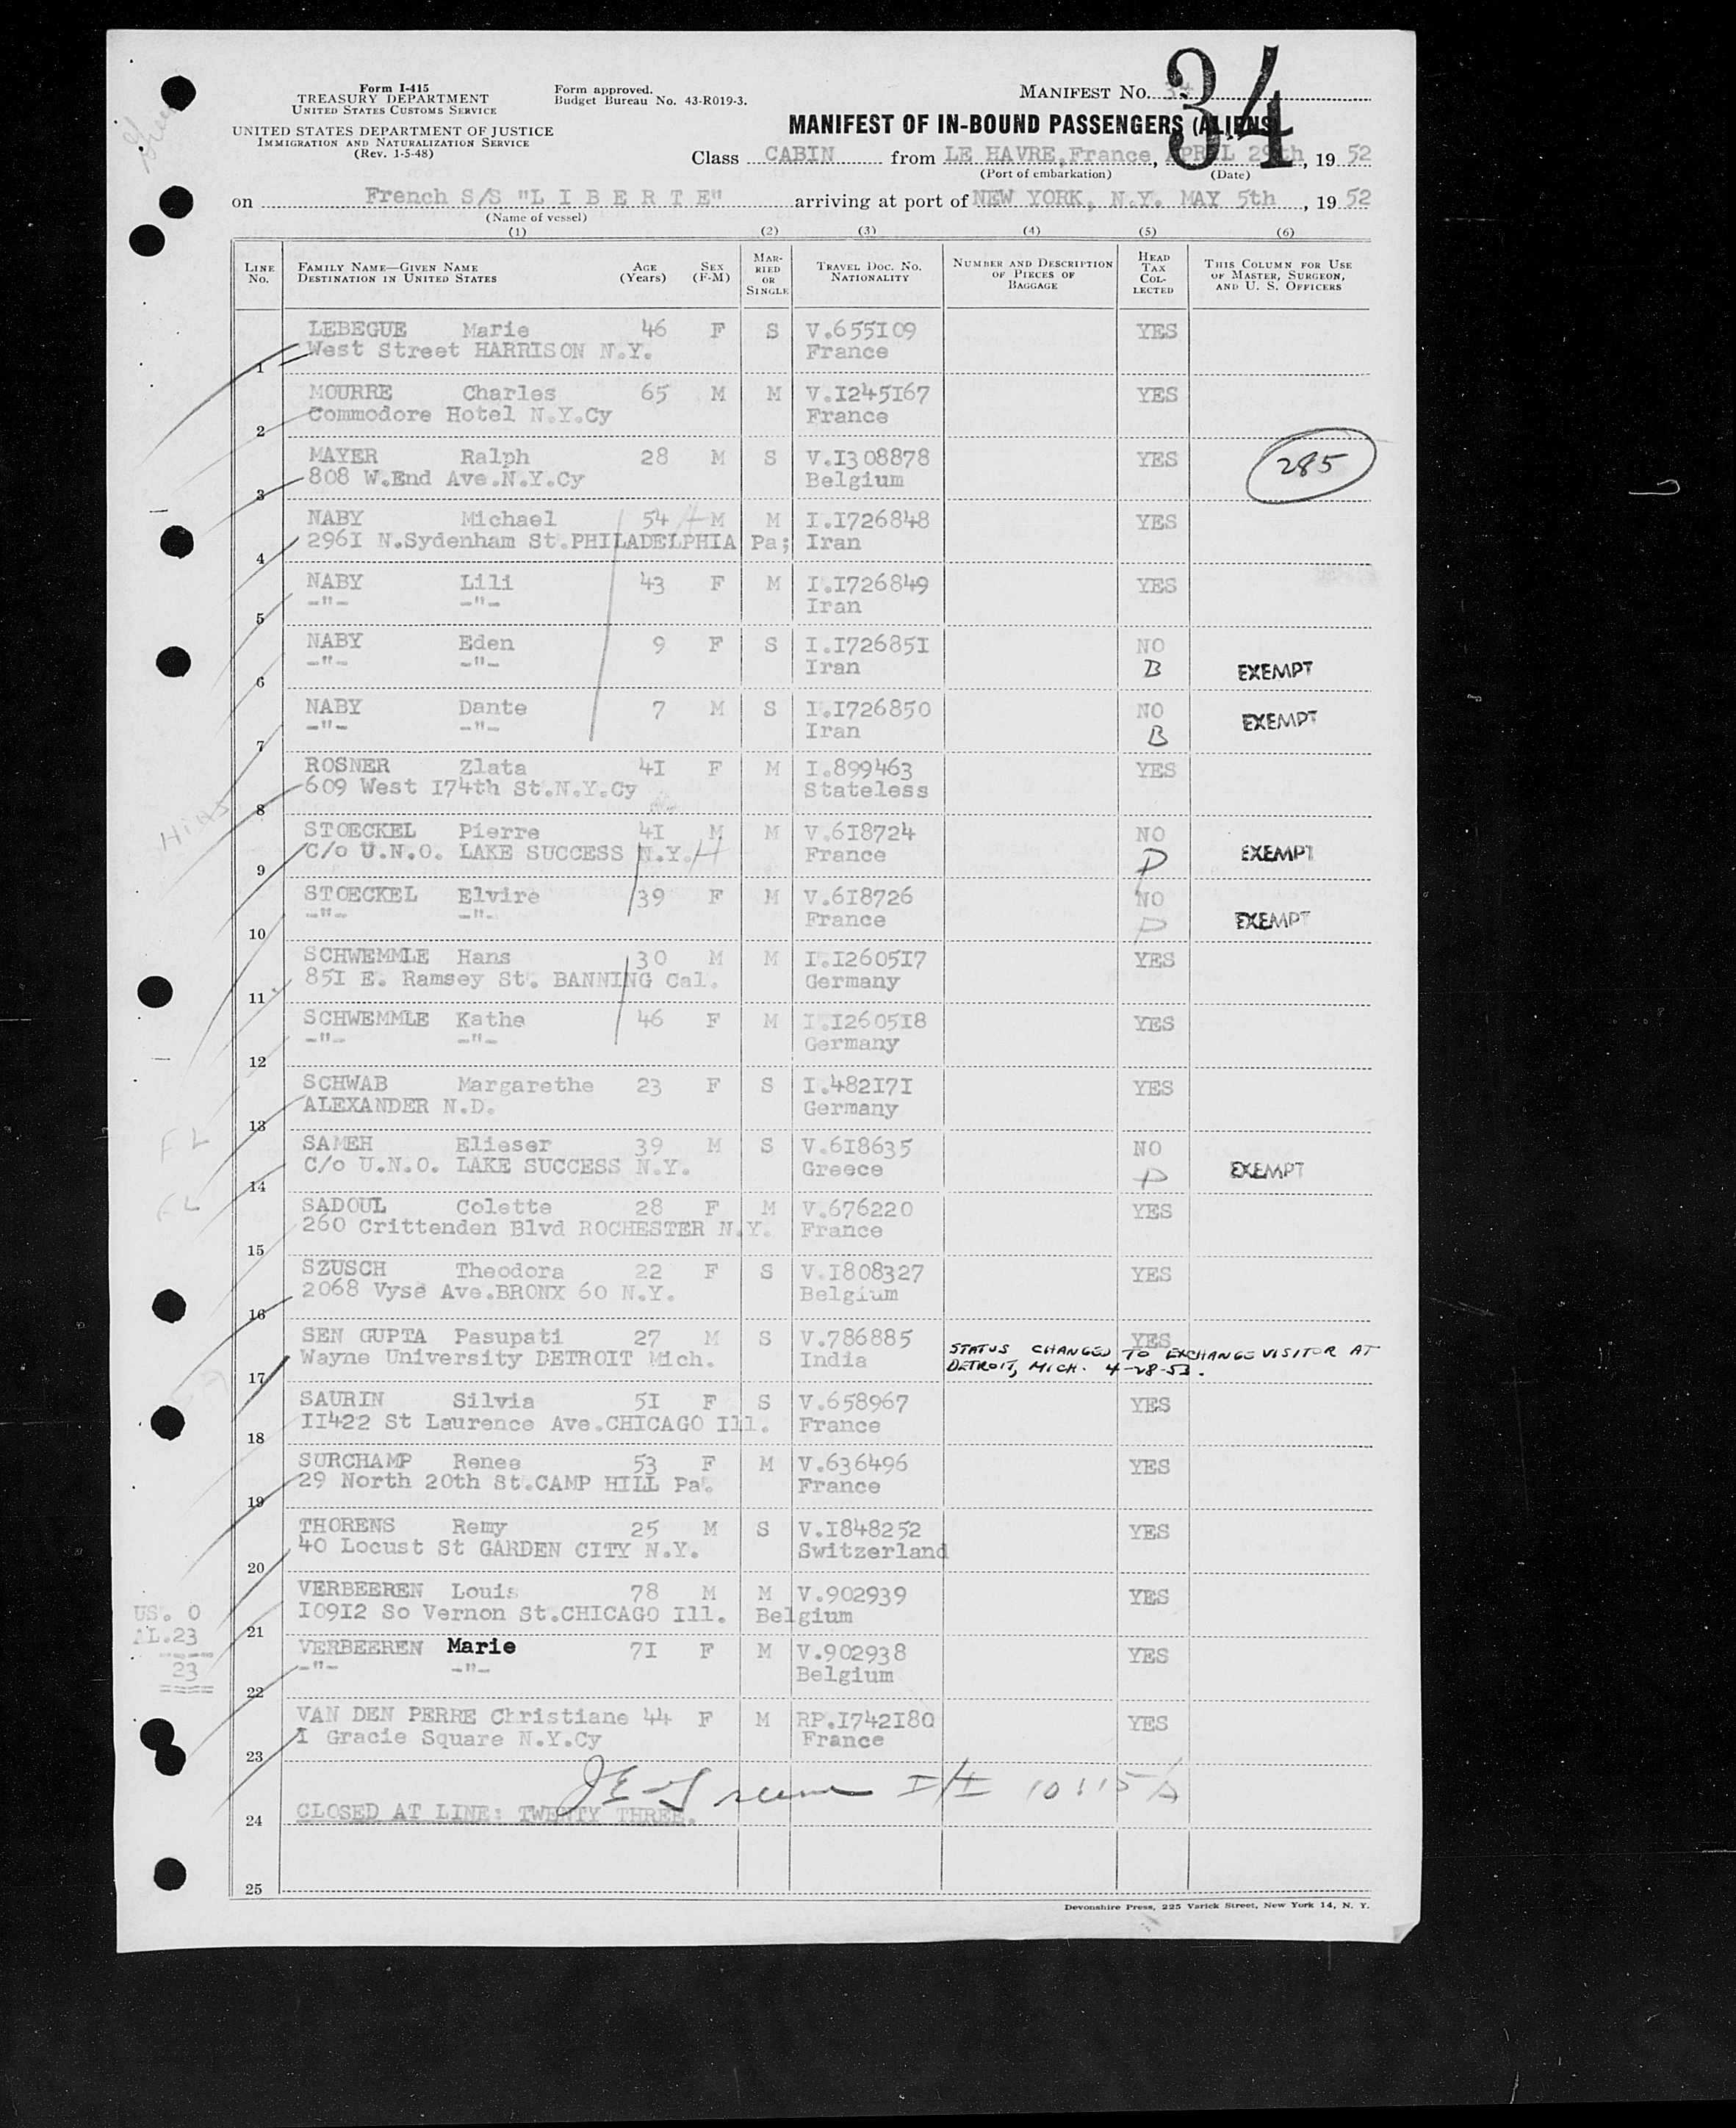 Form I-415
TREASURY DEPARTMENT
UNITED STATES CUSTOMS SERVICE
UNITED STATES DEPARTMENT OF JUSTICE
IMMIGRATION AND NATURALIZATION SERVICE
(Rev. 1-5-48)
Form approved.
Budget Bureau No. 43-R019-3.
MANIFEST NO. 34
MANIFEST OF IN-BOUND PASSENGERS (ALIENS)
Class CABIN from LE HAVRE,France, APRIL 29th, 19 52
(Port of embarkation) (Date)
on French S/S "L I B E R T E" arriving at port of NEW YORK, N.Y. MAY 5th, 19 52
(Name of vessel)
(1) (2) (3) (4) (5) (6)
LINE NO. FAMILY NAME—GIVEN NAME DESTINATION IN UNITED STATES AGE (Years) SEX (F-M) MARRIED OR SINGLE TRAVEL DOC. NO. NATIONALITY NUMBER AND DESCRIPTION OF PIECES OF BAGGAGE HEAD TAX COLLECTED THIS COLUMN FOR USE OF MASTER, SURGEON, AND U. S. OFFICERS
LEBEGUE Marie 46 F S V.655I09 YES
1 West Street HARRISON N.Y. France
MOURRE Charles 65 M M V.I245I67 YES
2 Commodore Hotel N.Y.Cy France
MAYER Ralph 28 M S V.I308878 YES 285
3 808 W.End Ave.N.Y.Cy Belgium
NABY Michael 54 M M I.I726848 YES
4 296I N.Sydenham St.PHILADELPHIA Pa; Iran
NABY Lili 43 F M I.I726849 YES
5 -"- -"- Iran
NABY Eden 9 F S I.I72685I NO
6 -"- -"- Iran B EXEMPT
NABY Dante 7 M S I.I726850 NO
7 -"- -"- Iran B EXEMPT
ROSNER Zlata 4I F M I.899463 YES
8 609 West I74th St.N.Y.Cy Stateless
Hias
STOECKEL Pierre 4I M M V.6I8724 NO
9 C/o U.N.O. LAKE SUCCESS N.Y. France P EXEMPT
STOECKEL Elvire 39 F M V.6I8726 NO
10 -"- -"- France P EXEMPT
SCHWEMMLE Hans 30 M M I.I2605I7 YES
11 85I E. Ramsey St. BANNING Cal. Germany
SCHWEMMLE Kathe 46 F M I.I2605I8 YES
12 -"- -"- Germany
SCHWAB Margarethe 23 F S I.482I7I YES
13 ALEXANDER N.D. Germany
FL
SAMEH Elieser 39 M S V.6I8635 NO
14 C/o U.N.O. LAKE SUCCESS N.Y. Greece P EXEMPT
FL
SADOUL Colette 28 F M V.676220 YES
15 260 Crittenden Blvd ROCHESTER N.Y. France
SZUSCH Theodora 22 F S V.I808327 YES
16 2068 Vyse Ave.BRONX 60 N.Y. Belgium
SEN GUPTA Pasupati 27 M S V.786885 YES
17 Wayne University DETROIT Mich. India STATUS CHANGED TO EXCHANGE VISITOR AT
DETROIT, MICH. 4-28-53.
SAURIN Silvia 5I F S V.658967 YES
18 II422 St Laurence Ave.CHICAGO Ill. France
SURCHAMP Renee 53 F M V.636496 YES
19 29 North 20th St.CAMP HILL Pa. France
THORENS Remy 25 M S V.I848252 YES
20 40 Locust St GARDEN CITY N.Y. Switzerland
VERBEEREN Louis 78 M M V.902939 YES
21 I09I2 So Vernon St.CHICAGO Ill. Belgium
US. 0
AL.23
23
VERBEEREN Marie 7I F M V.902938 YES
22 -"- -"- Belgium
VAN DEN PERRE Christiane 44 F M RP.I742I80 YES
23 I Gracie Square N.Y.Cy France
I/I 10:15 A
24 CLOSED AT LINE: TWENTY THREE.
25
Devonshire Press, 225 Varick Street, New York 14, N. Y.